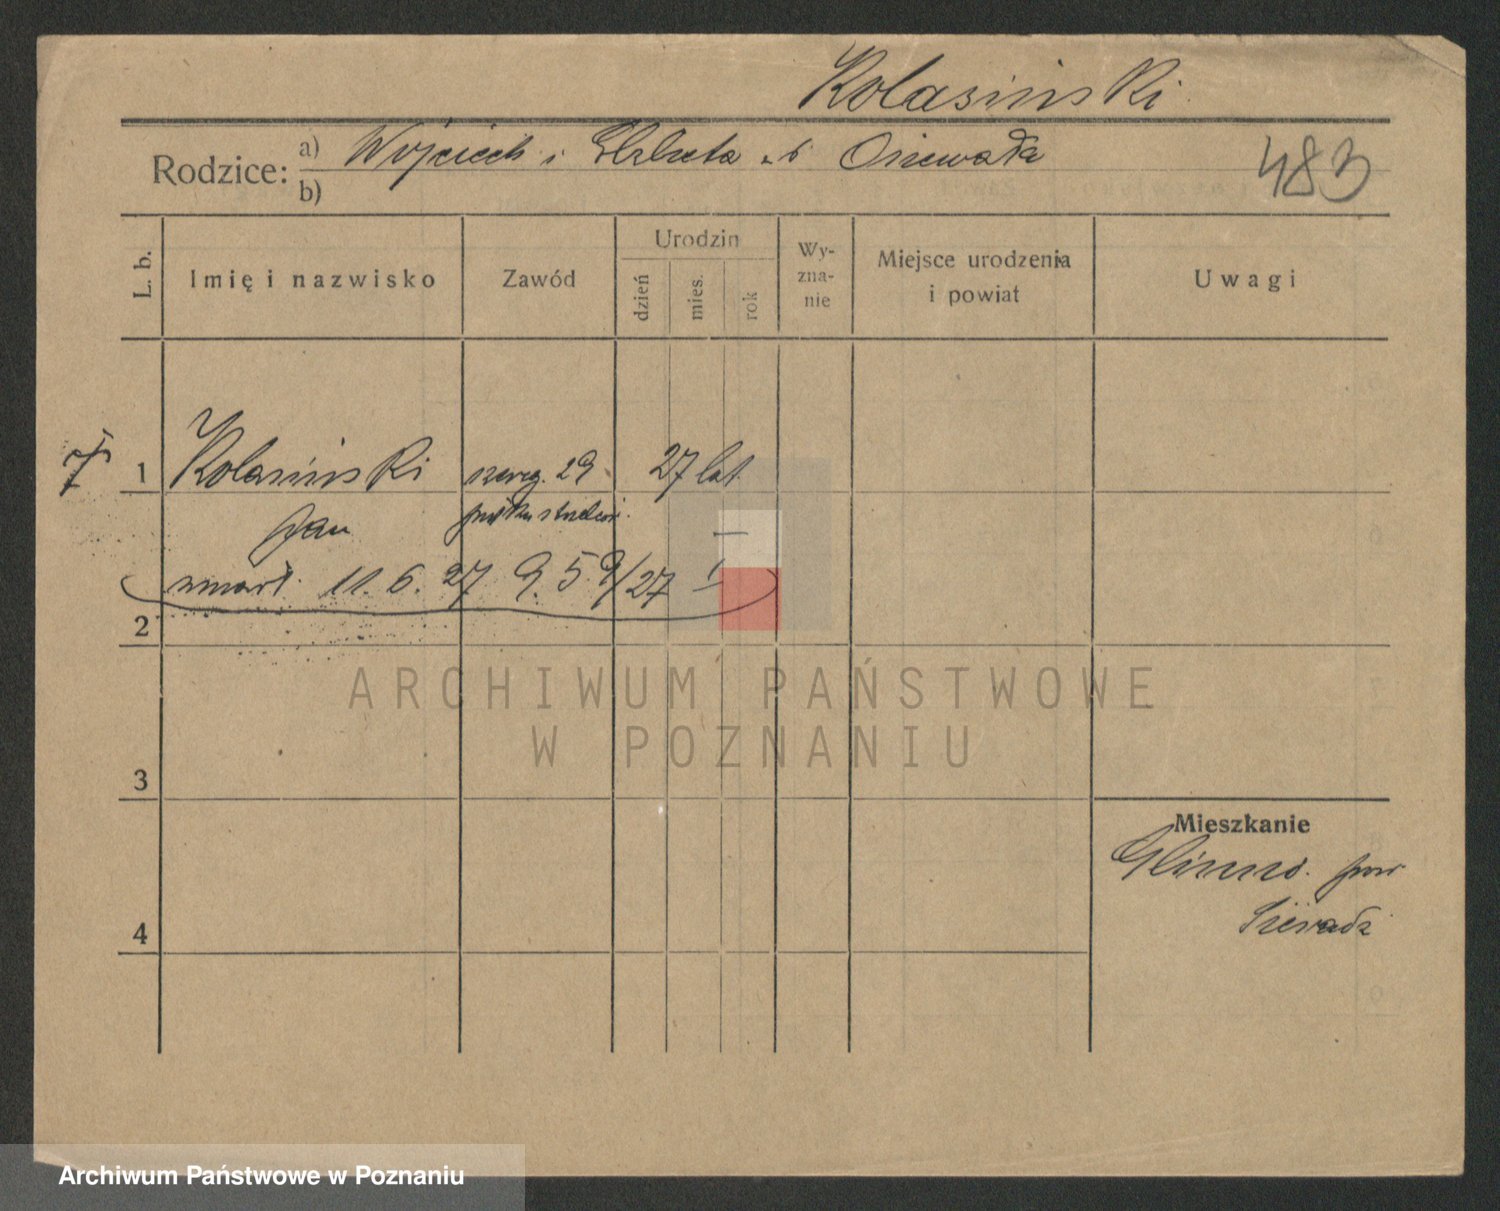 Kolasiński
Rodzice: a) Wojciech i Elżbieta
b)
483
L. b.
Imię i nazwisko
Zawód
Urodzin
dzień
mies.
rok
Wy-
zna-
nie
Miejsce urodzenia
i powiat
Uwagi
1 Kolasiński szereg. 29 27 lat
Jan pułku
zmarł. 11. 6. 27 9. 59/27 I
2
3
4
Mieszkanie
Glinno. pow
Sieradz
ARCHIWUM PAŃSTWOWE
W POZNANIU
Archiwum Państwowe w Poznaniu